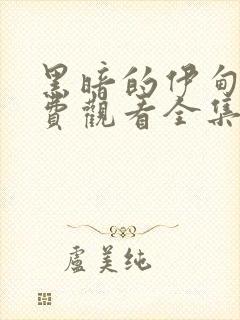 黑暗的伊甸
費觀看全集
盧美纯